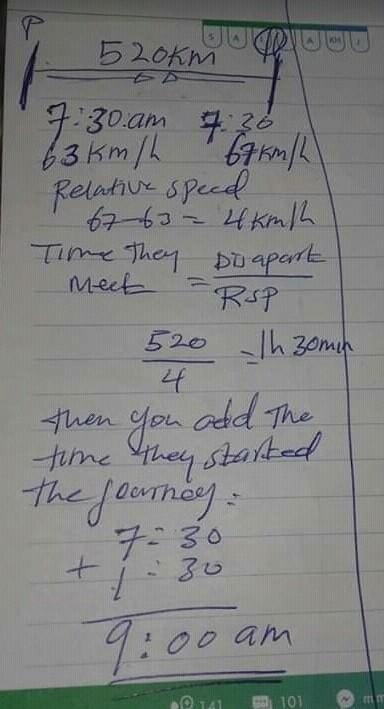 P
S A A KM I
520km
7:30.am 7:30
63km/h 67km/h
Relative speed
67-63 = 4km/h
Time they Meet = DD apart / RSP
520/4 = 1h 30min
then you add the
time they started
the journey:
7:30
+ 1:30
9:00 am
141 101